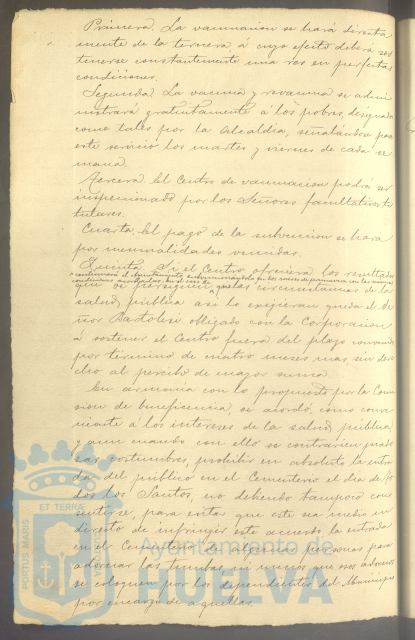 Primera. La vacunacion se hará directa
mente de la ternera, á cuyo efecto deberá sos
tenerse constantemente una res en perfectas
condiciones.
Segunda. La vacuna y revacuna se admi
nistrará gratuitamente á los pobres, designados
como tales por la Alcaldia, señalándose para
este servicio los martes y viernes de cada se
mana.
Tercera. El Centro de vacunacion podrá ser
inspeccionado por los Señores facultativos ti
tulares.
Cuarta. El pago de la subvencion se hará
por mensualidades vencidas.
Quinta. Si el Centro ofreciera los resultados
que se persiguen, y las circunstancias de la
salud pública así lo exigieran queda el Se
ñor Bartolesi obligado con la Corporacion
á sostener el Centro fuera del plazo convenido
por término de cuatro meses mas sin dere
cho al percibo de mayor suma.
En armonía con lo propuesto por la Comi
sion de beneficencia, se acordó, como conve
niente á los intereses de la salud pública
y aun cuando con ello se contrarien piado
sas costumbres, prohibir en absoluto la entra
da del público en el Cementerio el dia de To
dos los Santos, no debiendo tampoco con
sentirse, para evitar que este sea medio in
directo de infringir este acuerdo, la entrada
en el Cementerio de algunas personas para
adornar las tumbas, á menos que esos adornos
se coloquen por los dependientes del Municipio
por encargo de aquellas.
PORTUS MARIS
ET TERRAE
Ayuntamiento de
HUELVA